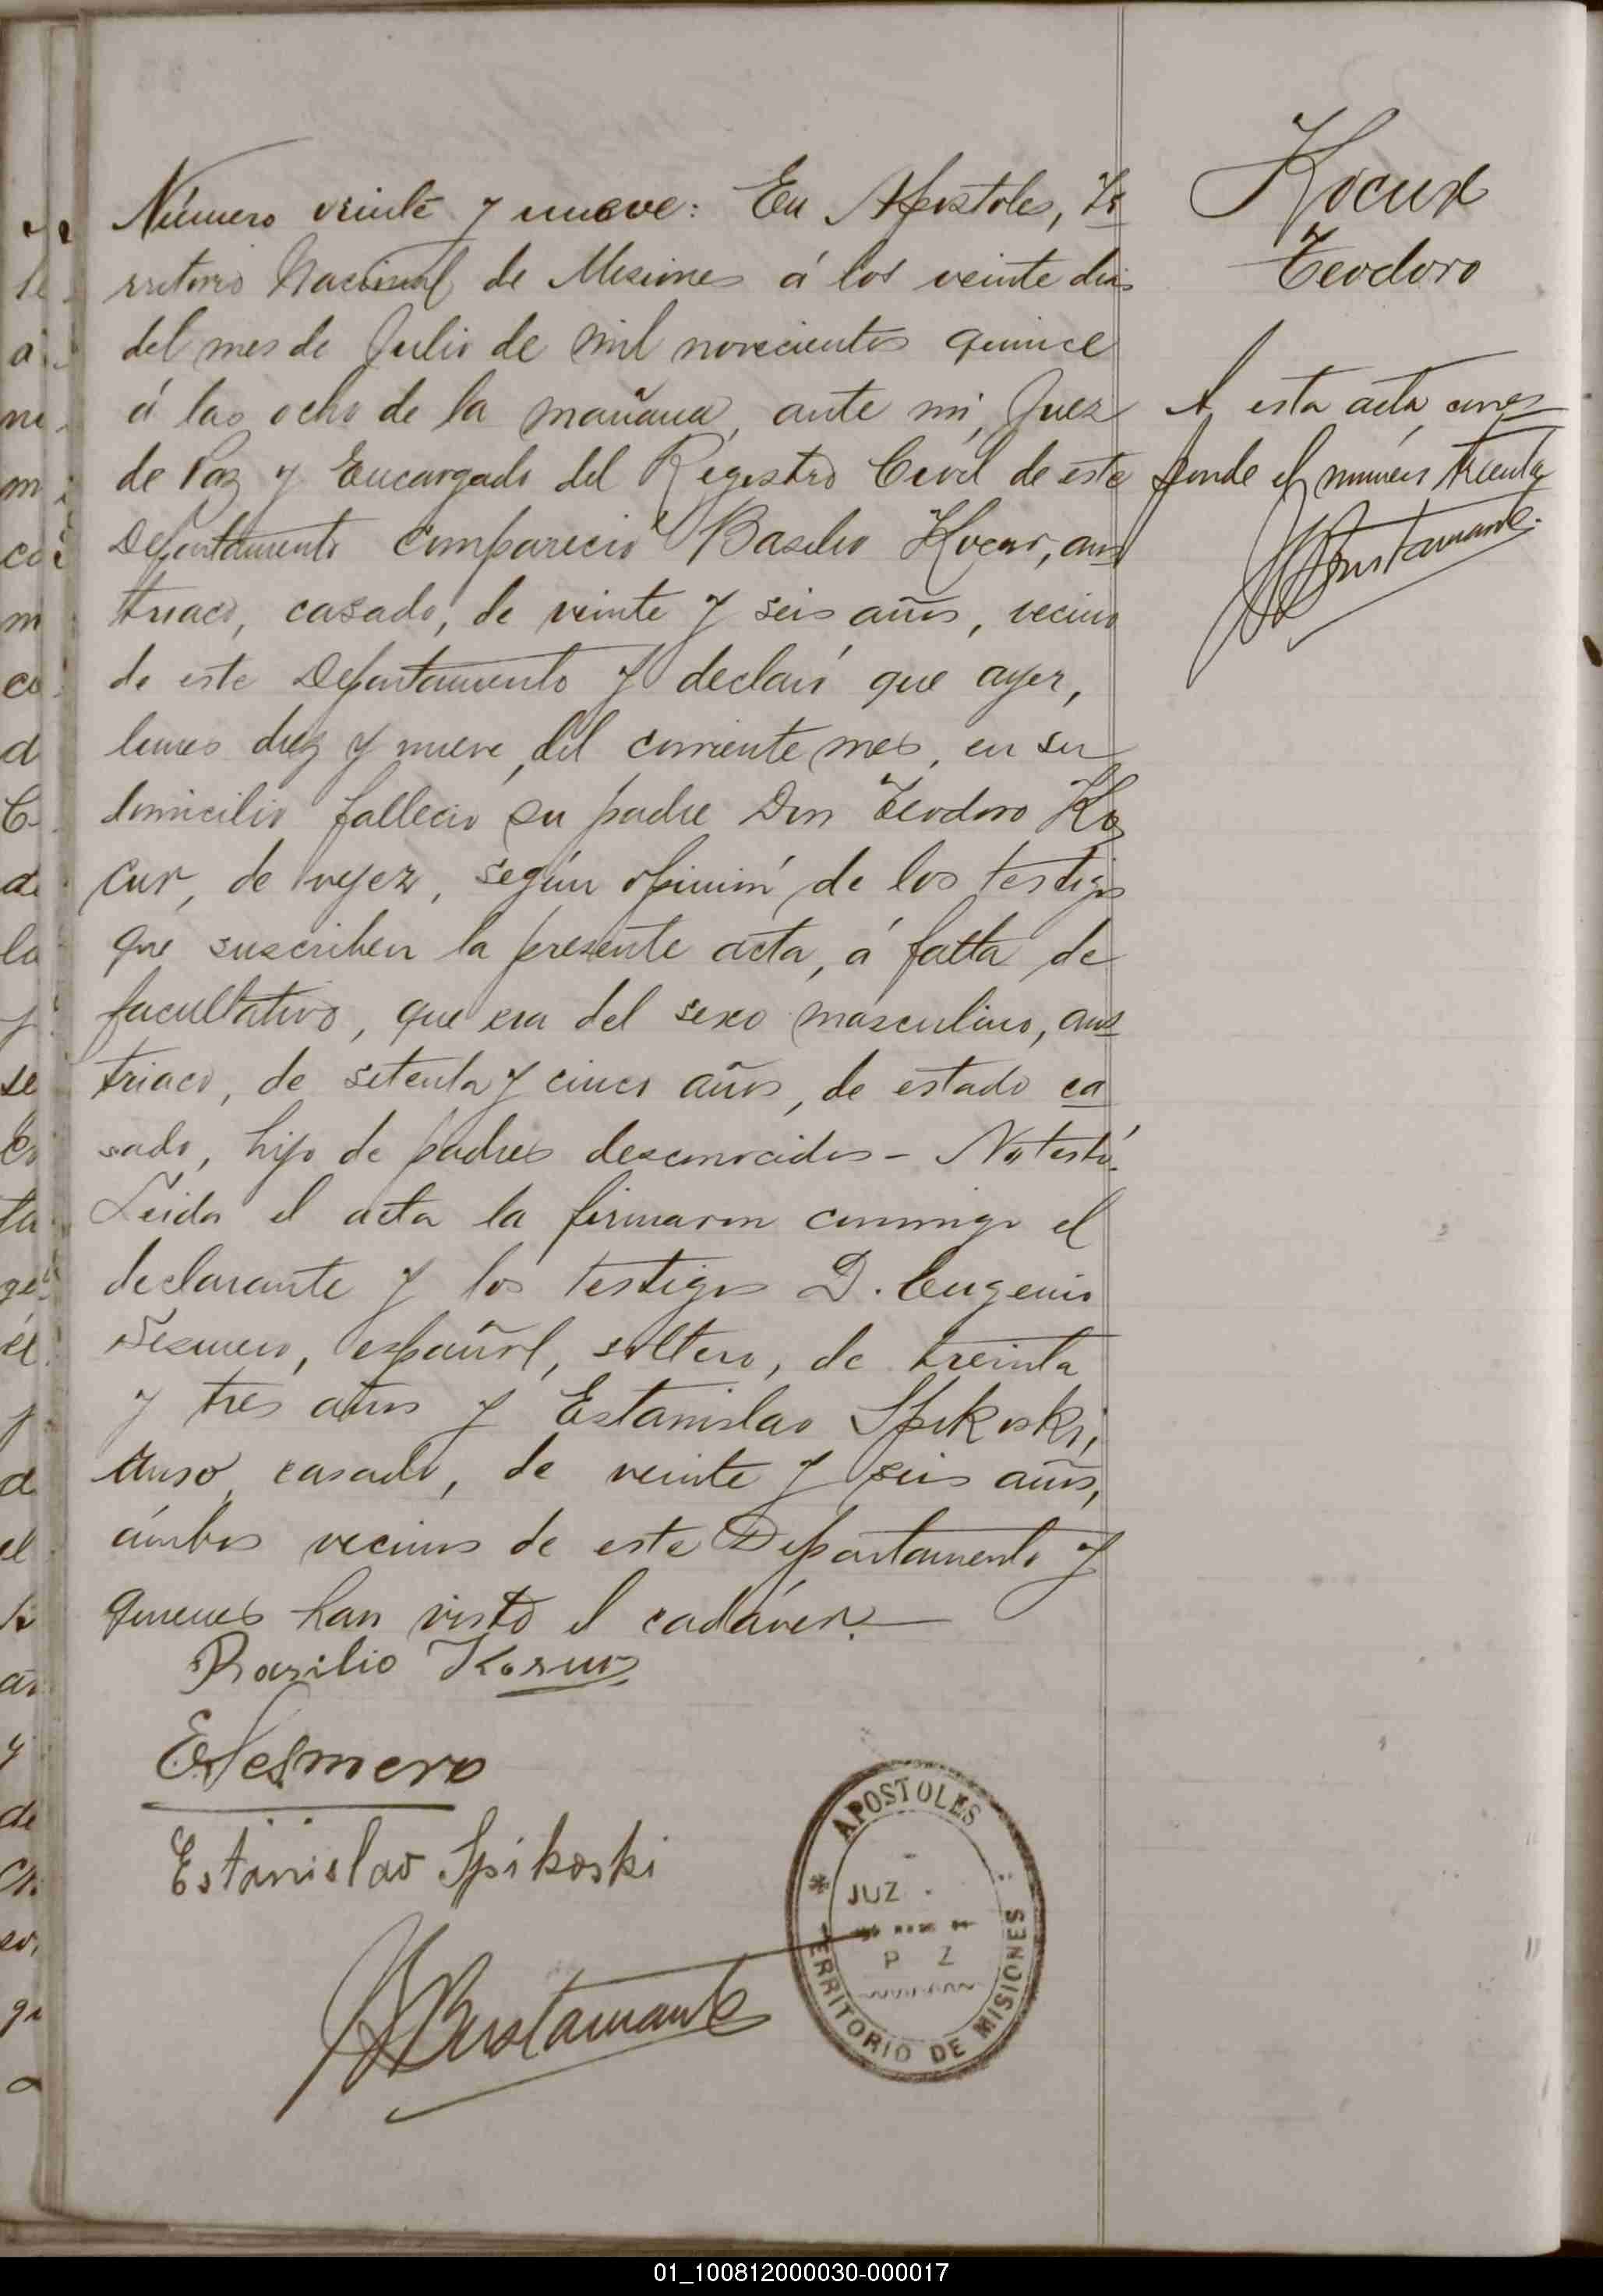 Número veinte y nueve: En Apostoles, Te
rritorio Nacional de Misiones á los veinte dias
del mes de Julio de mil novecientos quince
á las ocho de la mañana, ante mi, Juez
de Paz y Encargado del Registro Civil de este
Departamento compareció Basilio Kocur, aus
triaco, casado, de veinte y seis años, vecino
de este Departamento y declaró que ayer,
lunes diez y nueve, del corriente mes, en su
domicilio falleció su padre Don Teodoro Ko
cur, de vejez, según opinión de los testigos
que suscriben la presente acta, á falta de
facultativo, que era del sexo masculino, aus
triaco, de setenta y cinco años, de estado ca
sado, hijo de padres desconocidos - No testó.
Leida el acta la firmaron conmigo el
declarante y los testigos D. Eugenio
Sesmero, español, soltero, de treinta
y tres años y Estanislao Spikoski,
ruso, casado, de veinte y seis años,
ámbos vecinos de este Departamento y
quienes han visto el cadáver.
Basilio Kocur
E Sesmero
Estanislao Spikoski
Bustamante
Kocur
Teodoro
A esta acta corres
ponde el número treinta
Bustamante
APOSTOLES
JUZ
P Z
TERRITORIO DE MISIONES
01_100812000030-000017